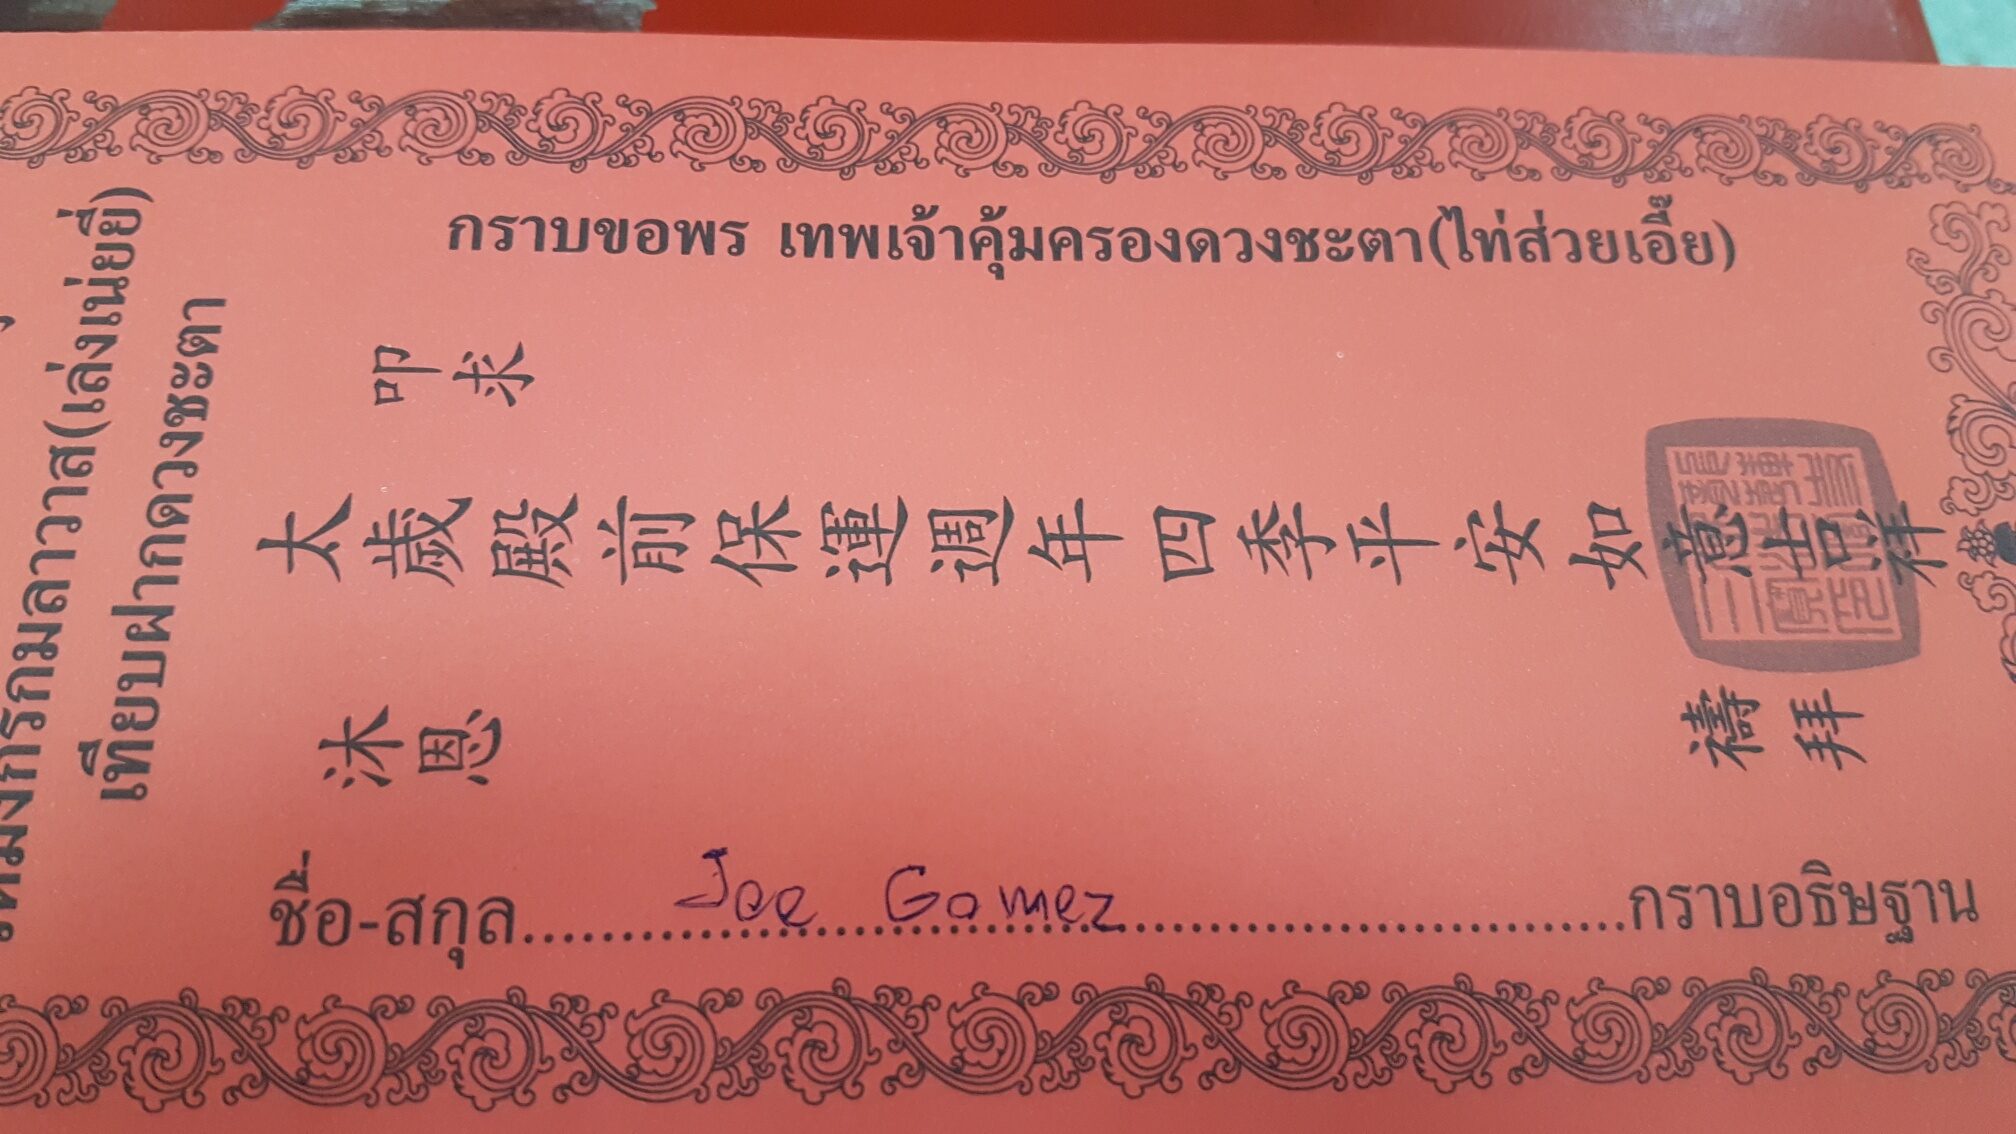 มังกรกมลาวาส(เล่งเน่ยยี่)
เทียบฝากดวงชะตา
กราบขอพร เทพเจ้าคุ้มครองดวงชะตา(ไท่ส่วยเอี๊ย)
叩求
太歲殿前保運週年四季平安如意吉祥
沐恩
禱拜
ชื่อ-สกุล Joe Gomez กราบอธิษฐาน